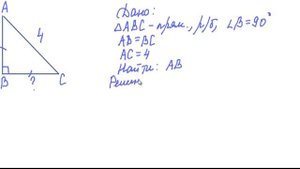 A
4
B
?
C
Дано:
△ABC - прям., р/б, ∠B=90°
AB=BC
AC=4
Найти: AB
Решень